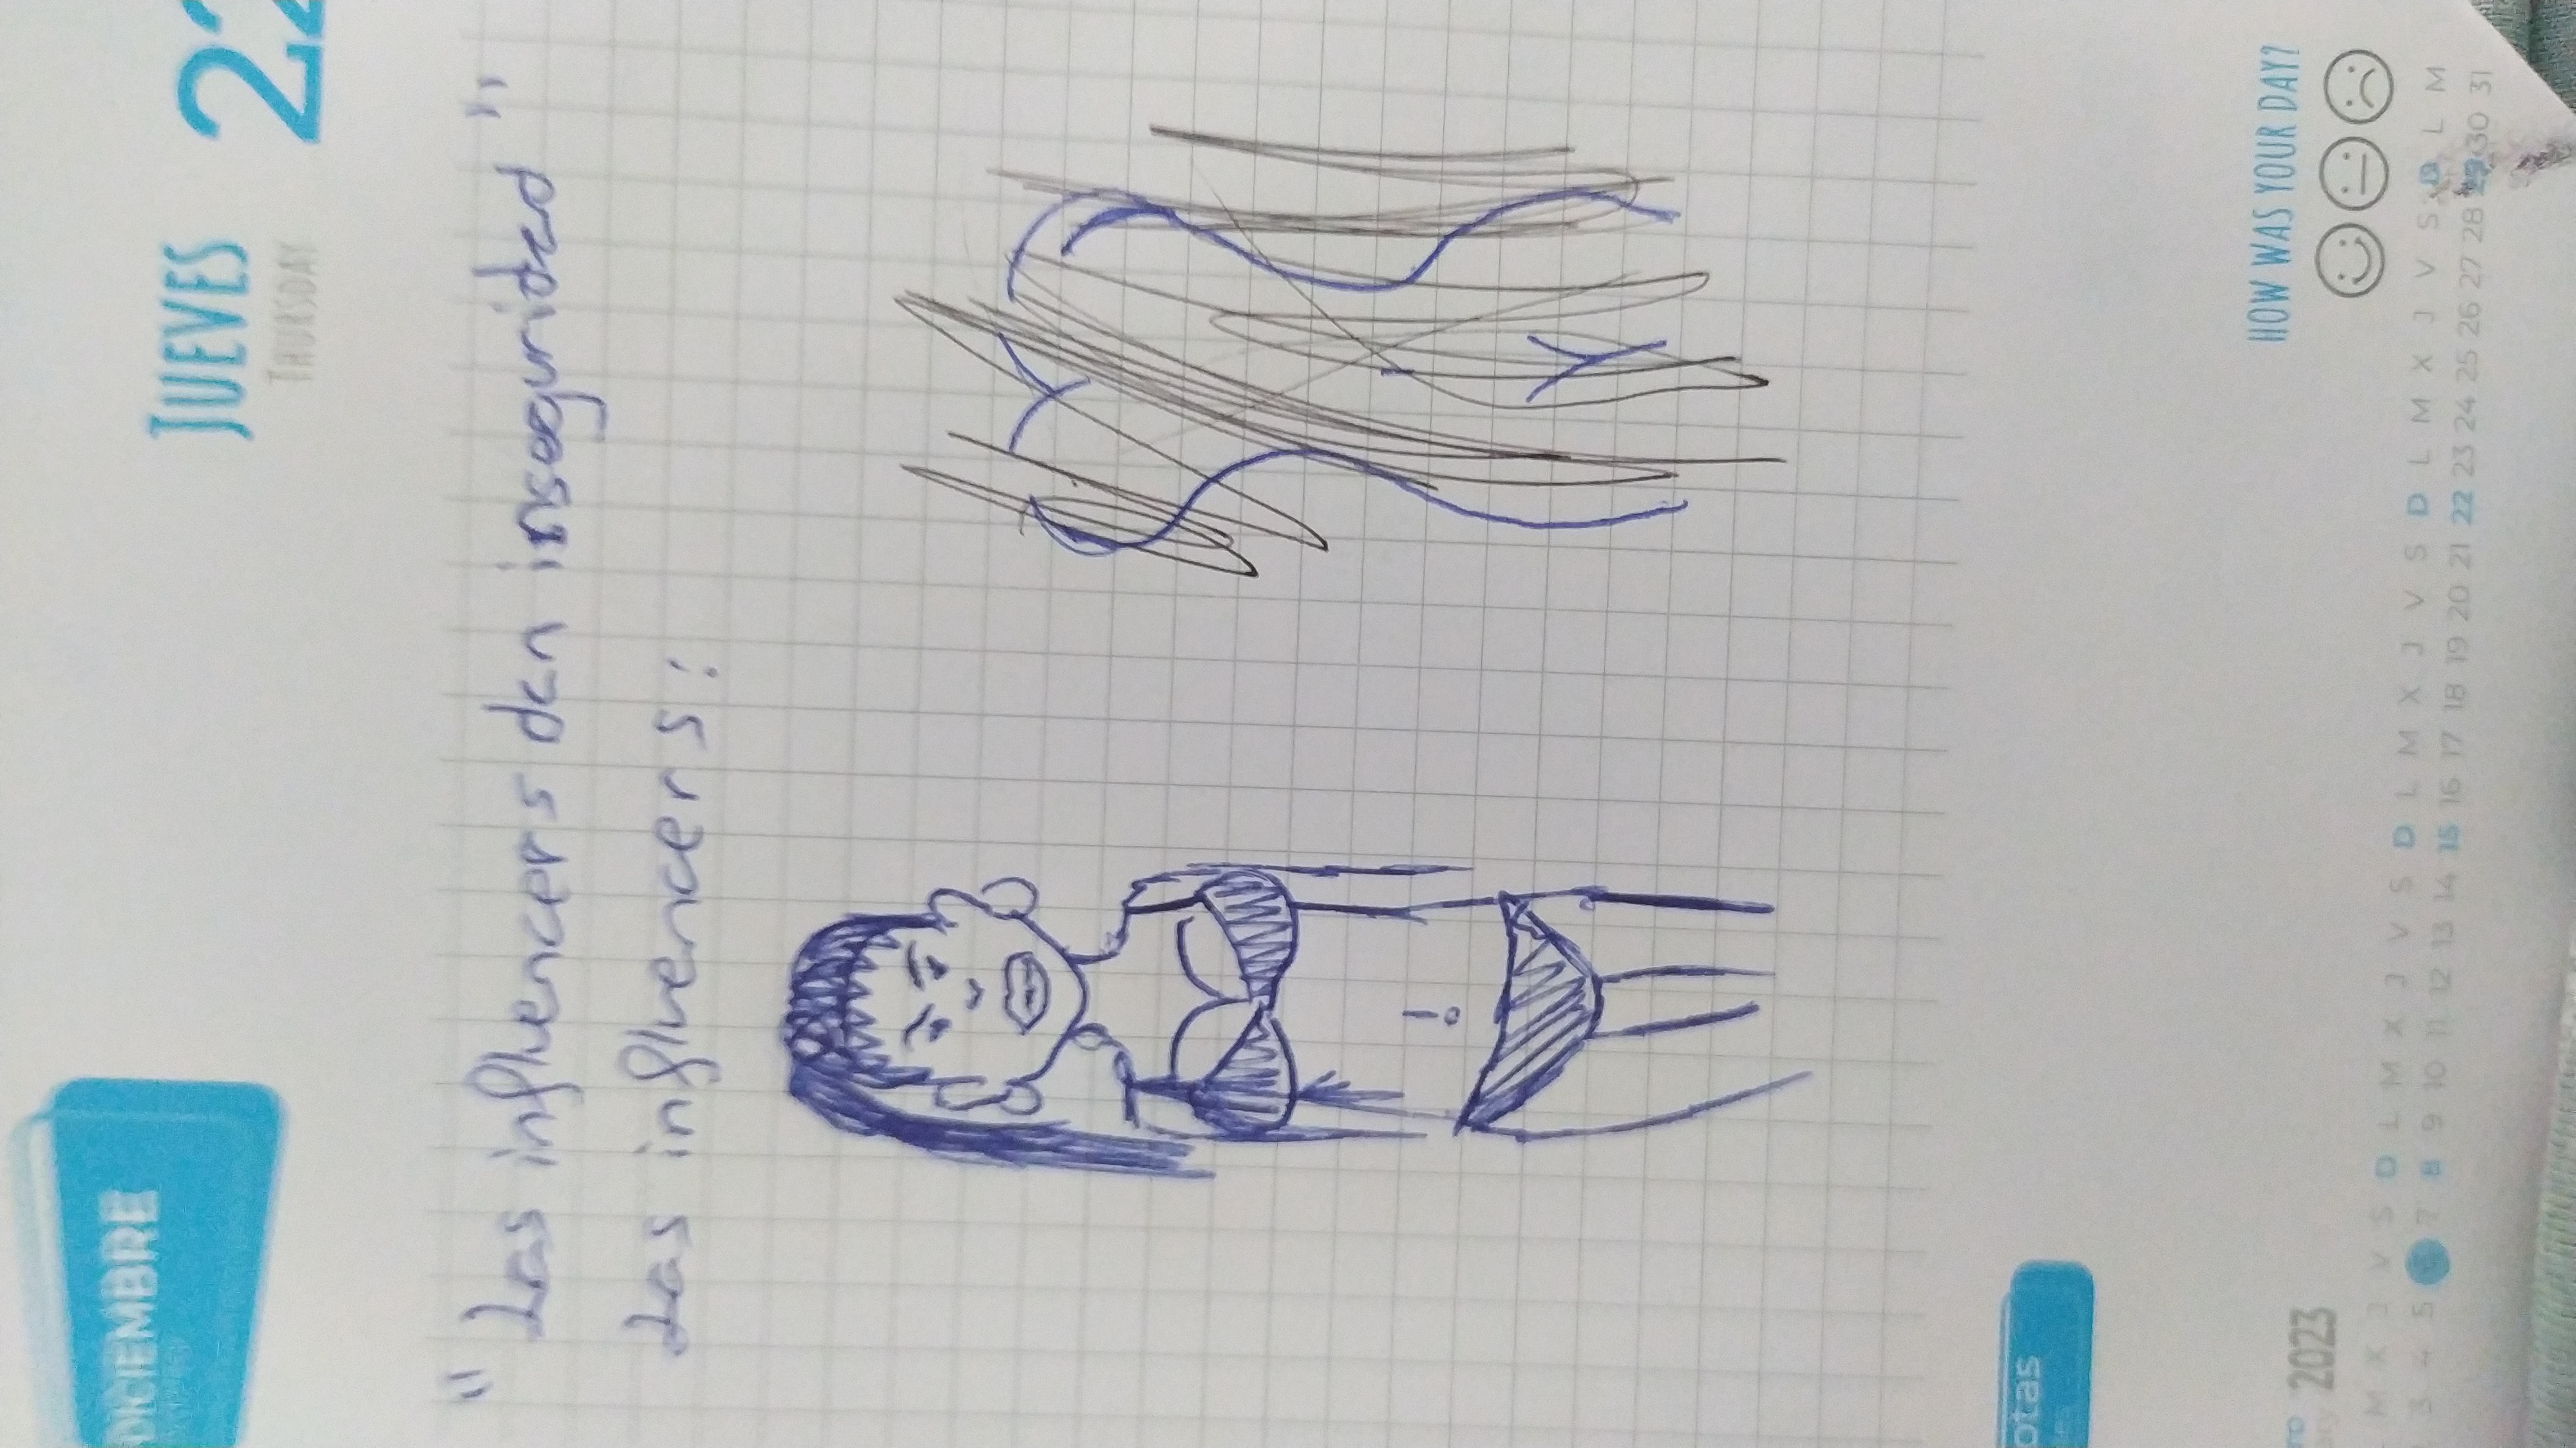 DICIEMBRE
JUEVES 22
THURSDAY
" Las influencers dan inseguridad "
Las influencers:
otas
HOW WAS YOUR DAY?
2023
M X J V S D L M X J V S D L M X J V S D L M X J V S D L M
3 4 5 6 7 8 9 10 11 12 13 14 15 16 17 18 19 20 21 22 23 24 25 26 27 28 29 30 31